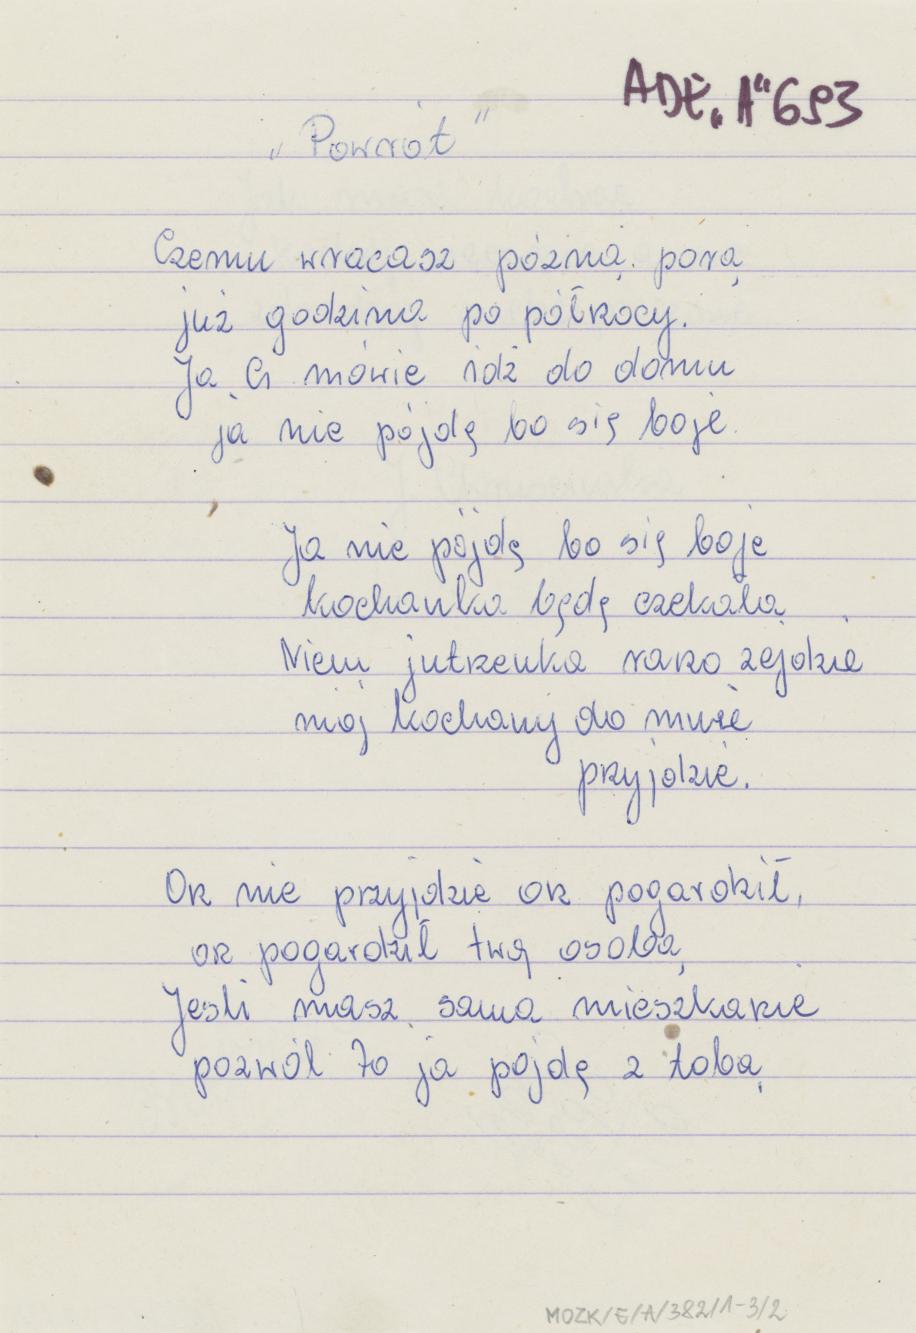 ADE. „A" 653
„Powrót"
Czemu wracasz późną porą
już godzina po północy.
Ja Ci mówie idź do domu
ja nie pójdę bo się boje.
Ja nie pójdę bo się boje
kochanka będę czekała
Niem jutrzenka rano zejdzie
mój kochany do mnie
przyjdzie.
On nie przyjdzie on pogardził,
on pogardził twą osobą
Jeśli masz sama mieszkanie
pozwól to ja pójdę z tobą
MOZK/E/A/382/1-3/2